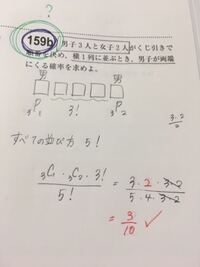 ?
159b 男子3人と女子2人がくじ引きで
順番を決め、横1列に並ぶとき、男子が両端
にくる確率を求めよ。
男 男
₃P₁ 3! ₃P₂
3·2
2
すべての並び方 5!
₃C₁ · ₃C₂ · 3! / 5! = 3·2·3·2 / 5·4·3·2
= 3/10 ✓